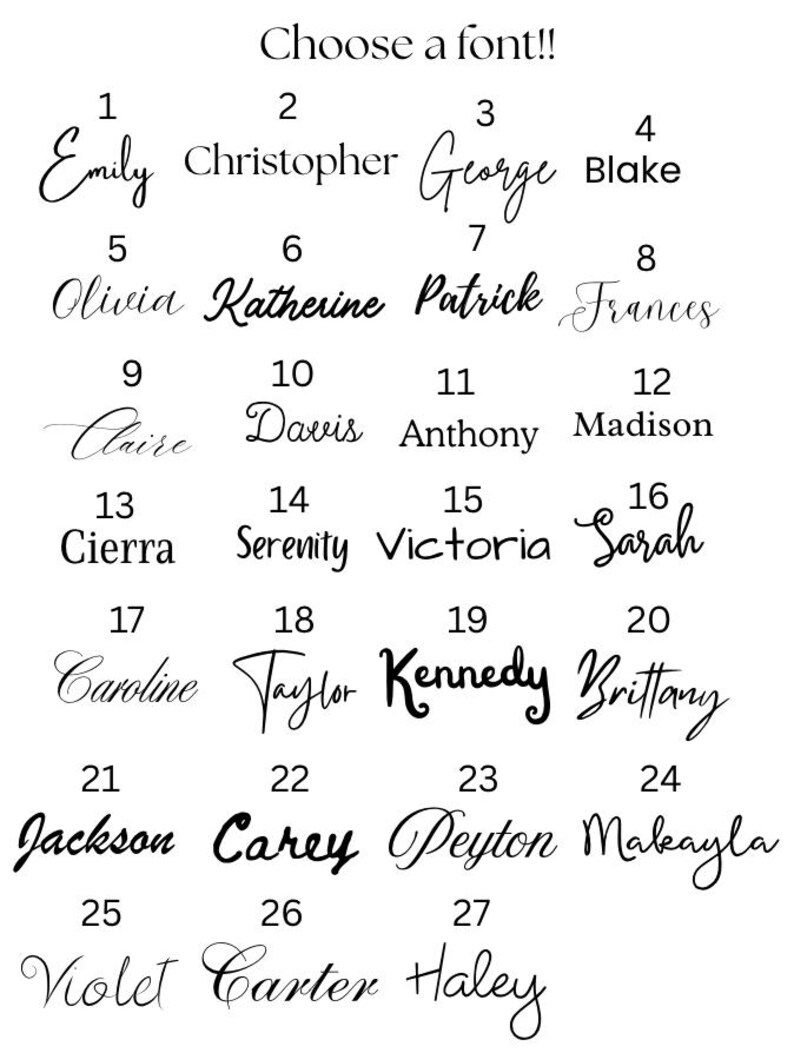 Choose a font!!
1 2 3 4
Emily Christopher George Blake
5 6 7 8
Olivia Katherine Patrick Frances
9 10 11 12
Claire Davis Anthony Madison
13 14 15 16
Cierra Serenity Victoria Sarah
17 18 19 20
Caroline Taylor Kennedy Brittany
21 22 23 24
Jackson Carey Peyton Makayla
25 26 27
Violet Carter Haley